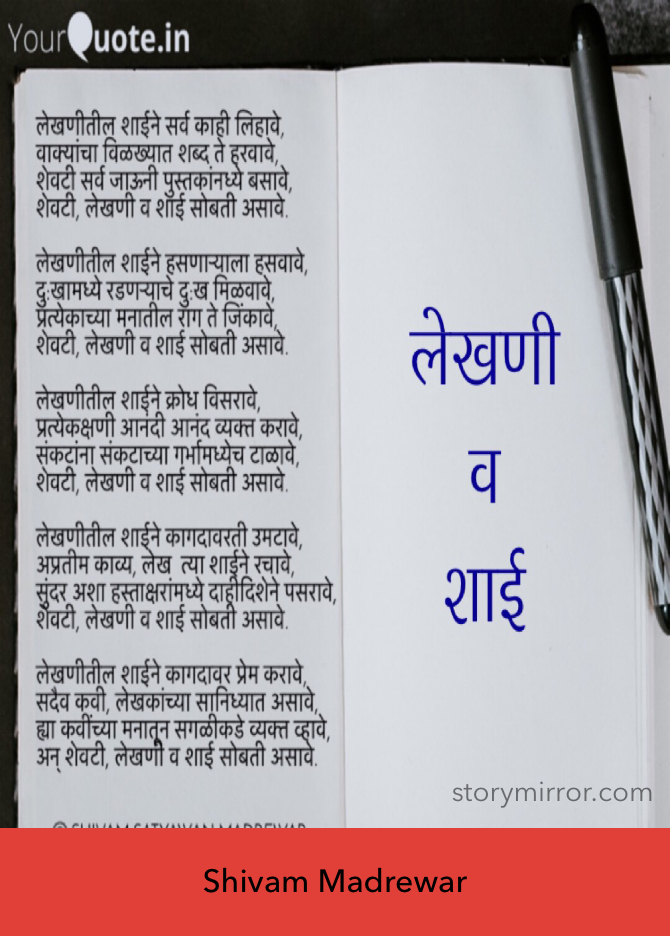 YourQuote.in
लेखणीतील शाईने सर्व काही लिहावे,
वाक्यांचा विळख्यात शब्द ते हरवावे,
शेवटी सर्व जाऊनी पुस्तकांनध्ये बसावे,
शेवटी, लेखणी व शाई सोबती असावे.
लेखणीतील शाईने हसणाऱ्याला हसवावे,
दुःखामध्ये रडणऱ्याचे दुःख मिळवावे,
प्रत्येकाच्या मनातील राग ते जिंकावे,
शेवटी, लेखणी व शाई सोबती असावे.
लेखणीतील शाईने क्रोध विसरावे,
प्रत्येकक्षणी आनंदी आनंद व्यक्त करावे,
संकटांना संकटाच्या गर्भामध्येच टाळावे,
शेवटी, लेखणी व शाई सोबती असावे.
लेखणीतील शाईने कागदावरती उमटावे,
अप्रतीम काव्य, लेख त्या शाईने रचावे,
सुंदर अशा हस्ताक्षरांमध्ये दाहीदिशेने पसरावे,
शेवटी, लेखणी व शाई सोबती असावे.
लेखणीतील शाईने कागदावर प्रेम करावे,
सदैव कवी, लेखकांच्या सानिध्यात असावे,
ह्या कवींच्या मनातून सगळीकडे व्यक्त व्हावे,
अन् शेवटी, लेखणी व शाई सोबती असावे.
© SHIVAM SATYAWAN MADREWAR
लेखणी
व
शाई
storymirror.com
Shivam Madrewar